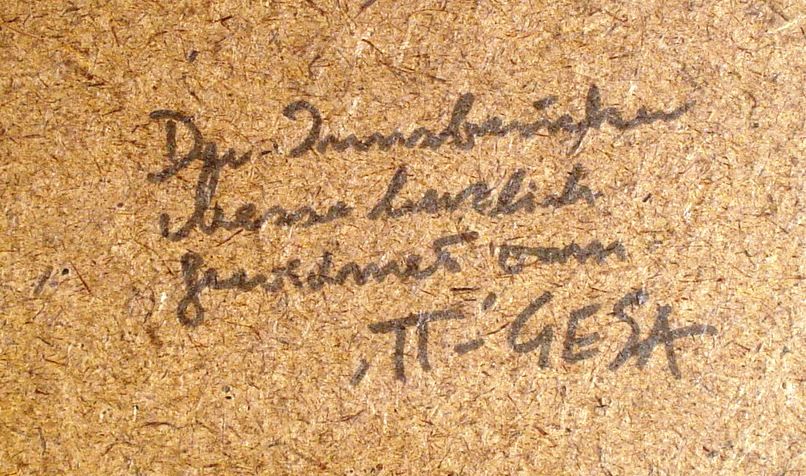 Der Innsbrucker
Messe herzlich
gewidmet vom
"π"-GESA